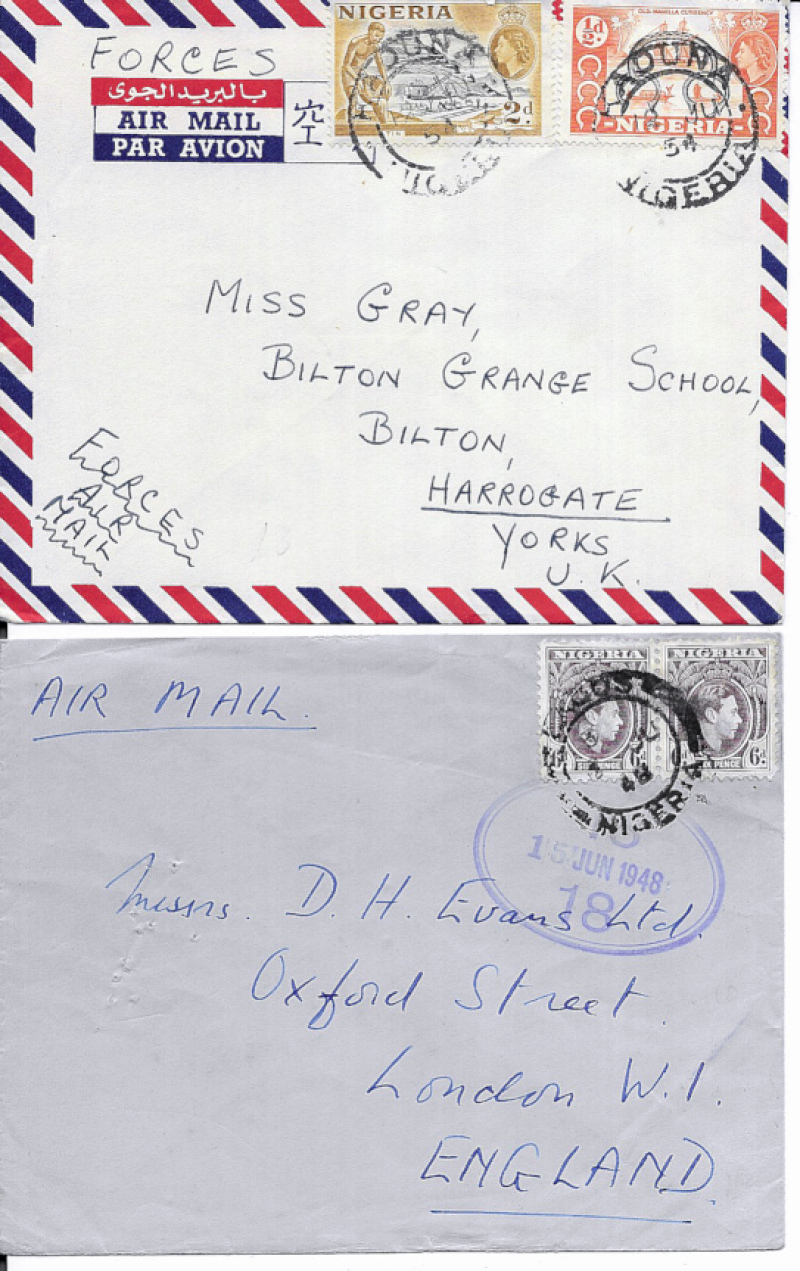 FORCES
بالبريد الجوى
AIR MAIL
PAR AVION
空
NIGERIA
2d.
½d.
OLD MANILLA CURRENCY
NIGERIA
KADUNA
NIGERIA
MISS GRAY,
BILTON GRANGE SCHOOL,
BILTON,
HARROGATE
YORKS
U.K.
FORCES
AIR
MAIL
AIR MAIL.
NIGERIA
NIGERIA
SIX PENCE
6d
NIGERIA
15 JUN 1948
18
Messrs. D. H. Evans Ltd.
Oxford Street.
London W.1.
ENGLAND.